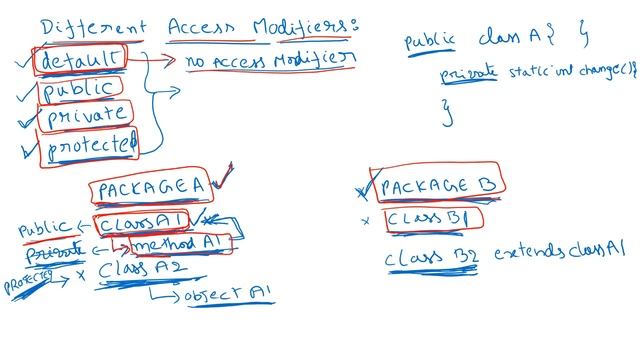 Different Access Modifiers:
default → no Access Modifier
public
private
protected
public class A { }
private static int change() {
}
PACKAGE A
Public ← class A1
Private ← method A1
PROTECTED → × Class A2
object A1
PACKAGE B
× Class B1
class B2 extends class A1